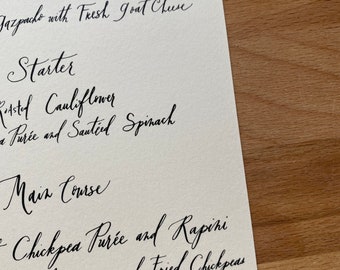 Gazpacho with Fresh Goat Cheese
Starter
Roasted Cauliflower
Purée and Sautéed Spinach
Main Course
Chickpea Purée and Rapini
Fried Chickpeas